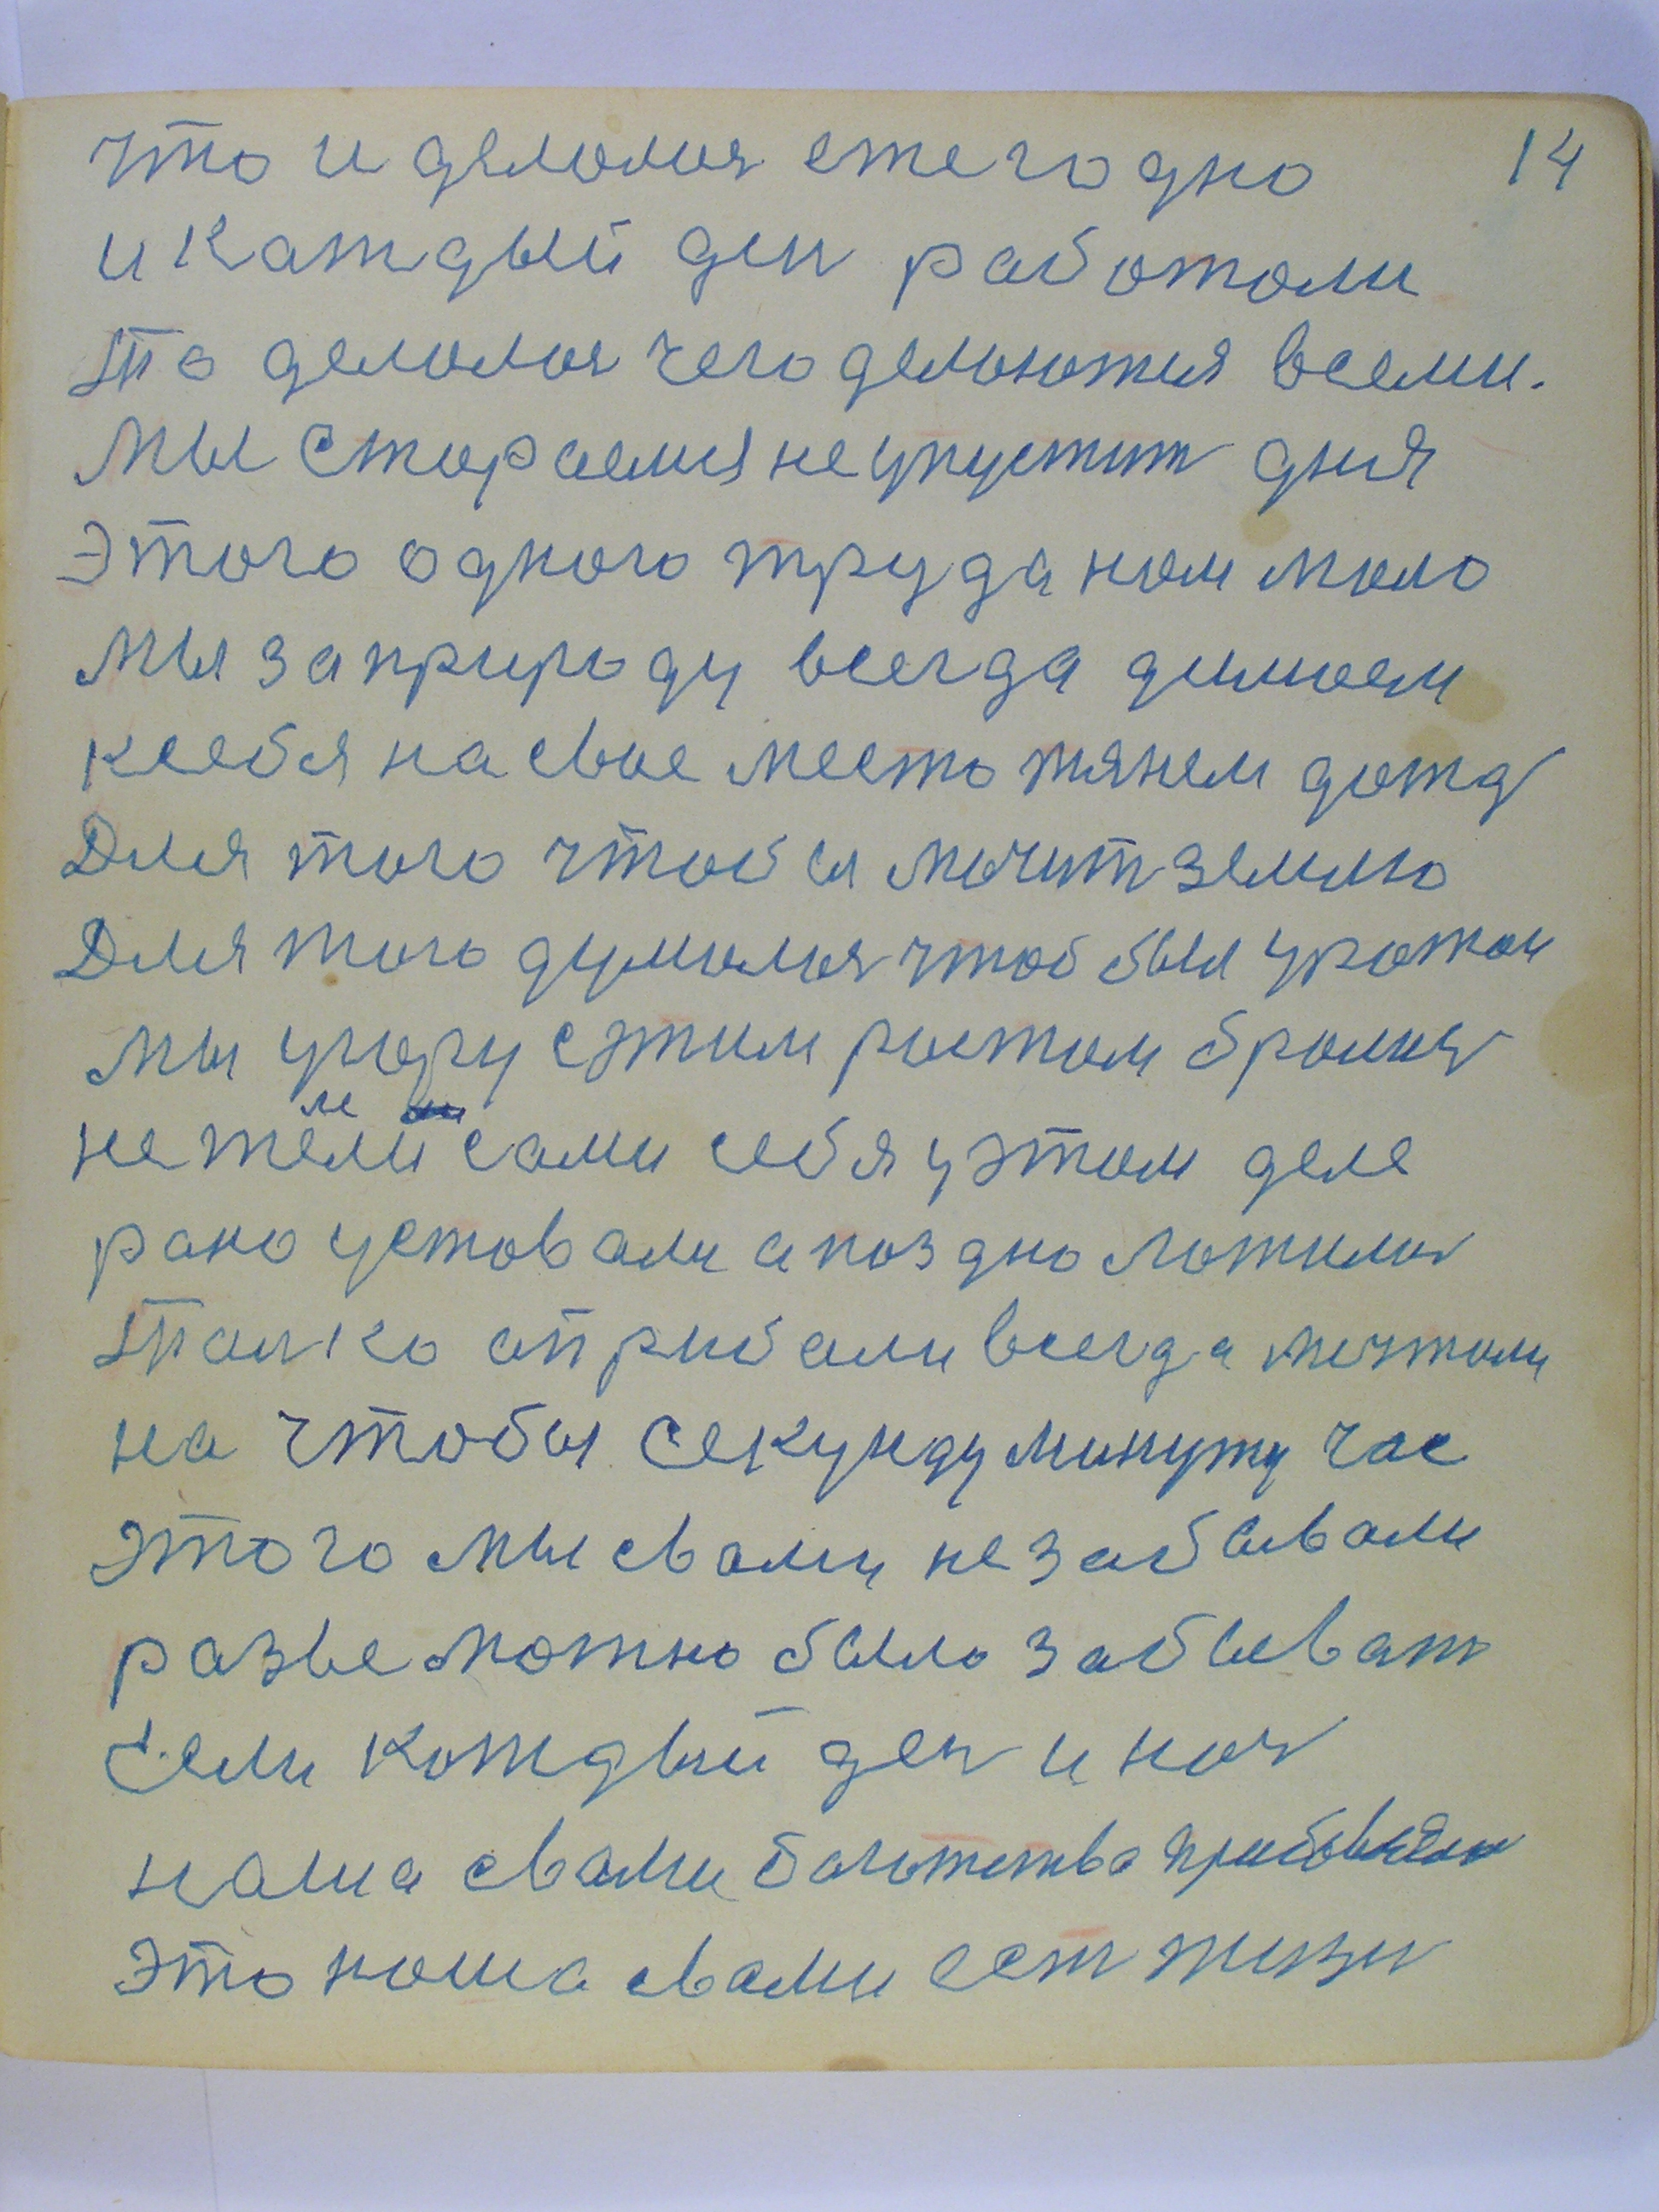 что и делалося ежегодно 14
и каждый ден работали
то делалося чего делаются всеми.
мы стараемся не упустит дня
этого одного труда нам мало
мы за природу всегда думаем
ксебя на свое место тянем дожд
Для того чтобы мочит землю
Для того думалося чтоб был урожаи
мы угору сэтим ростом бралися
не жалели сами себя у этом деле
рано уставали а поздно ложилис
толко а прибали всегда мечтали
на чтобы секунду минуту час
этого мы свами не забывали
разве можно было забыват
Если каждый ден и ноч
наша свами богатства прибавляли
это наша свами ест жизн